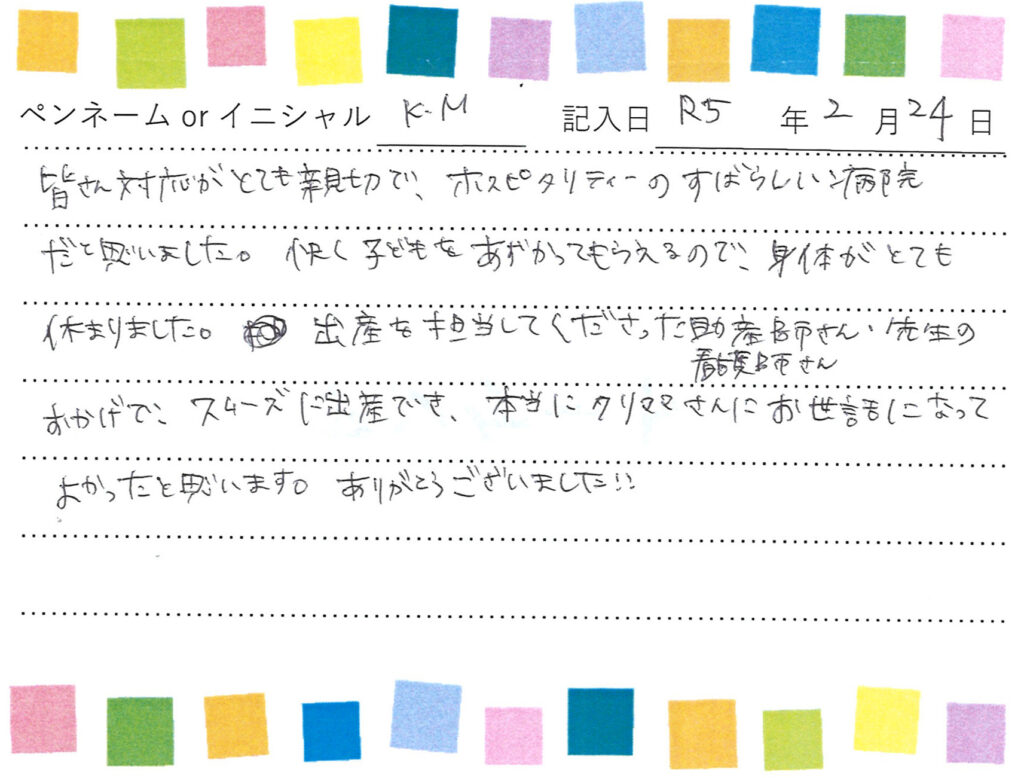 ペンネーム or イニシャル K.M 記入日 R5 年 2 月 24 日
皆さん対応がとても親切で、ホスピタリティーのすばらしい病院
だと思いました。快く子どもをあずかってもらえるので、身体がとても
休まりました。出産を担当してくださった助産師さん・先生の
看護師さん
おかげで、スムーズに出産でき、本当にクリママさんにお世話になって
よかったと思います。ありがとうございました!!